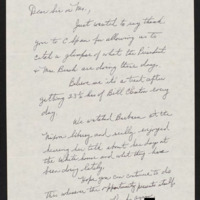 Dear Sir or Ms,
Just wanted to say thank
you to C Span for allowing us to
catch a glimpse of what the President
& Mrs Bush are doing these days.
Believe me its a treat after
getting 23½ hrs of Bill Clinton every
day.
We watched Barbara at the
Nixon Library and really enjoyed
hearing her talk about her days at
the White house and what they have
been doing lately.
Hope you can continue to do
this whenever the opportunity presents itself.